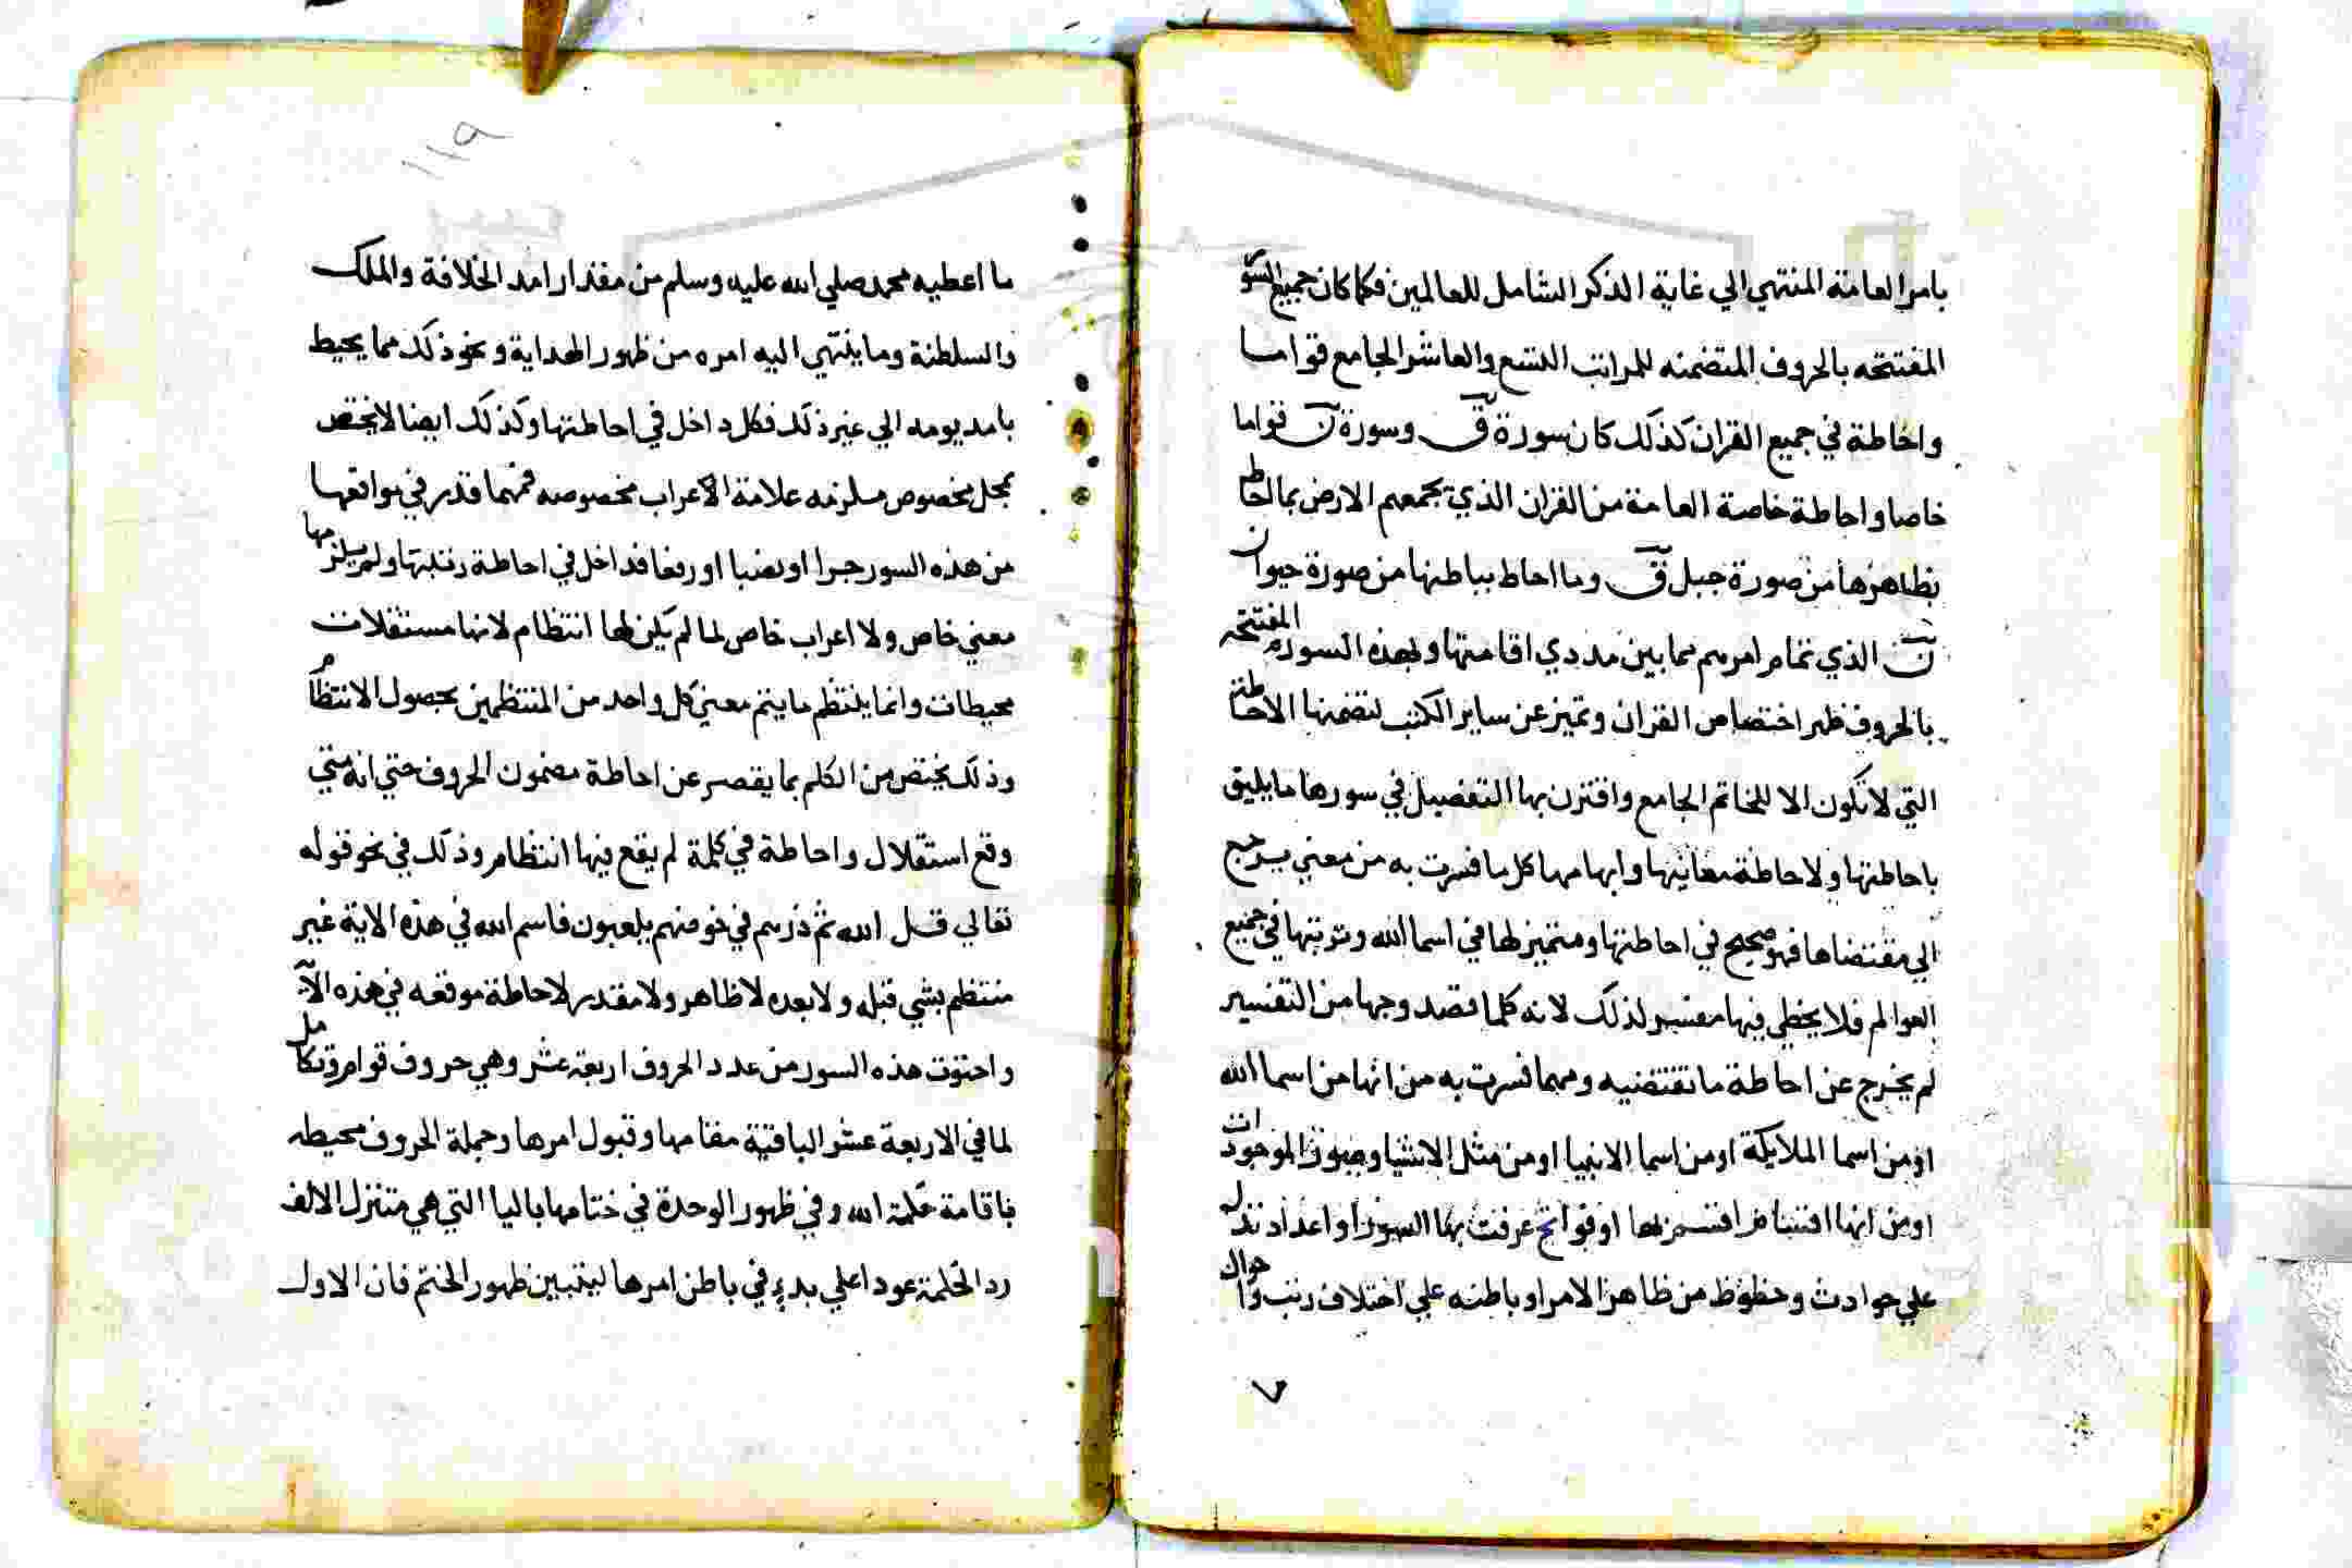 بامر العامة المنتهي الي غاية الذكر الشامل للعالمين فكما كان جميع السور
المفتتحه بالحروف المتضمنه للمراتب التسع والعاشر الجامع قواما
واحاطة في جميع القران كذلك كان سورة ق وسورة ن قواما
خاصا واحاطة خاصة العامة من القران الذي يجمعهم الارض بما احاط
بظاهرها من صورة جبل ق وما احاط بباطنها من صورة حيوان
ن الذي تمام امرهم مما بين مددي اقامتها ولهذه السورة المفتتحه
بالحروف ظهر اختصاص القران وتميز عن ساير الكتب لتضمنها الاحاطة
التي لا تكون الا للخاتم الجامع واقترن بها التفصيل في سورها ما يليق
باحاطتها ولاحاطة معانيها وابهامها كل ما فسرت به من معني يرجع
الي مقتضاها فهو صحيح في احاطتها ومتميز لها في اسما الله وترتبها في جميع
العوالم فلا يخطي فيها مفسر لذلك لانه كلما قصد وجها من التفسير
لم يخرج عن احاطة ما تقتضيه ومهما فسرت به من انها من اسما الله
او من اسما الملايكة او من اسما الانبيا او من مثل الاشيا وصور الموجودات
او من انها اقسام اقسم بها او فواتح عرفت بها السور او اعداد تدل
علي حوادث وحظوظ من ظاهر الامر او باطنه علي اختلاف رتب واحوال
٧
١١٩
ما اعطيه محمد صلي الله عليه وسلم من مقدار امد الخلافة والملك
والسلطنة وما ينتهي اليه امره من ظهور الهداية ونحو ذلك مما يحيط
بامد يومه الي غير ذلك فكل داخل في احاطتها وكذلك ايضا لا يختص
بمحل مخصوص ملزمه علامة الاعراب مخصوصه فمهما قدر في مواقعها
من هذه السور جرا او نصبا او رفعا فداخل في احاطة رتبتها ولم يلزمها
معني خاص ولا اعراب خاص لما لم يكن لها انتظام لانها مستقلات
محيطات وانما ينتظم ما يتم معني كل واحد من المنتظمين بحصول الانتظام
وذلك يختص من الكلم بما يقصر عن احاطة مضمون الحروف حتي انه متي
وقع استقلال واحاطة في كلمة لم يقع فيها انتظام وذلك في نحو قوله
تعالي قل الله ثم ذرهم في خوضهم يلعبون فاسم الله في هذه الاية غير
منتظم بشي قبله ولا بعده لا ظاهر ولا مقدر لاحاطة موقعه في هذه الاية
واحتوت هذه السور من عدد الحروف اربعة عشر وهي حروف قوام وتكامل
لما في الاربعة عشر الباقية مقامها وقبول امرها وجملة الحروف محيطه
باقامة كلمة الله وفي ظهور الوحدة في ختامها باليا التي هي متنزل الالف
رد الكلمة عودا علي بدء في باطن امرها ليتبين ظهور الختم فان الاول